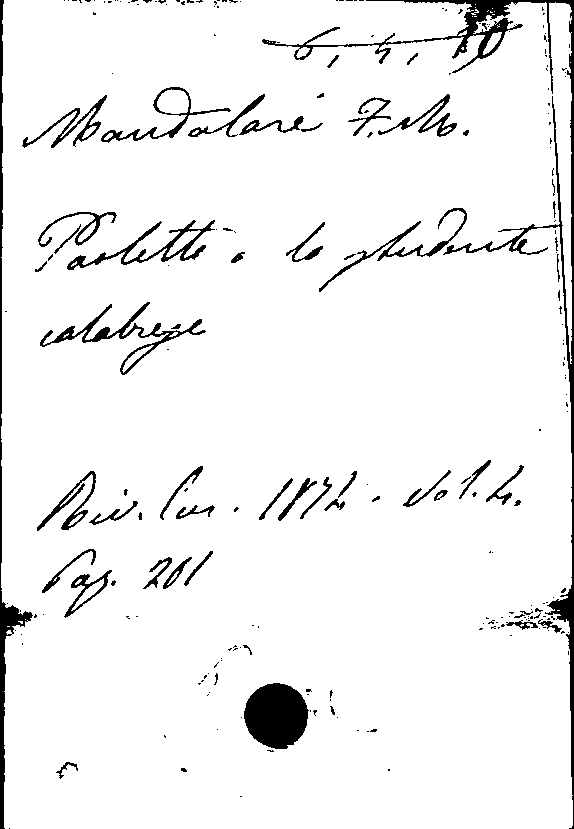 6, 4, 10
Mandalari F. M.
Paoletto o lo studente
calabrese
Riv. Eur. 1874. Vol. 4.
Pag. 201